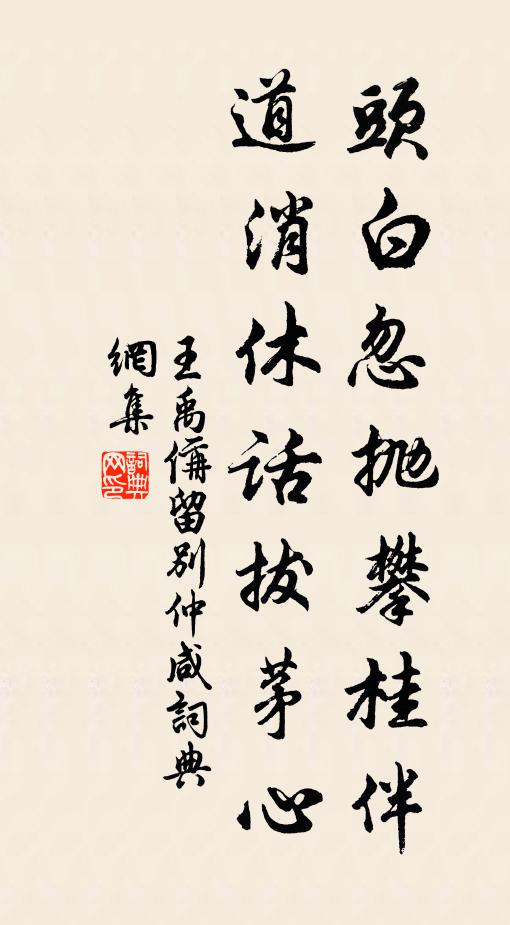 頭白忽拋攀桂伴
道消休話拔茅心
王禹偁留別仲咸詞典
網集
詞典
网印